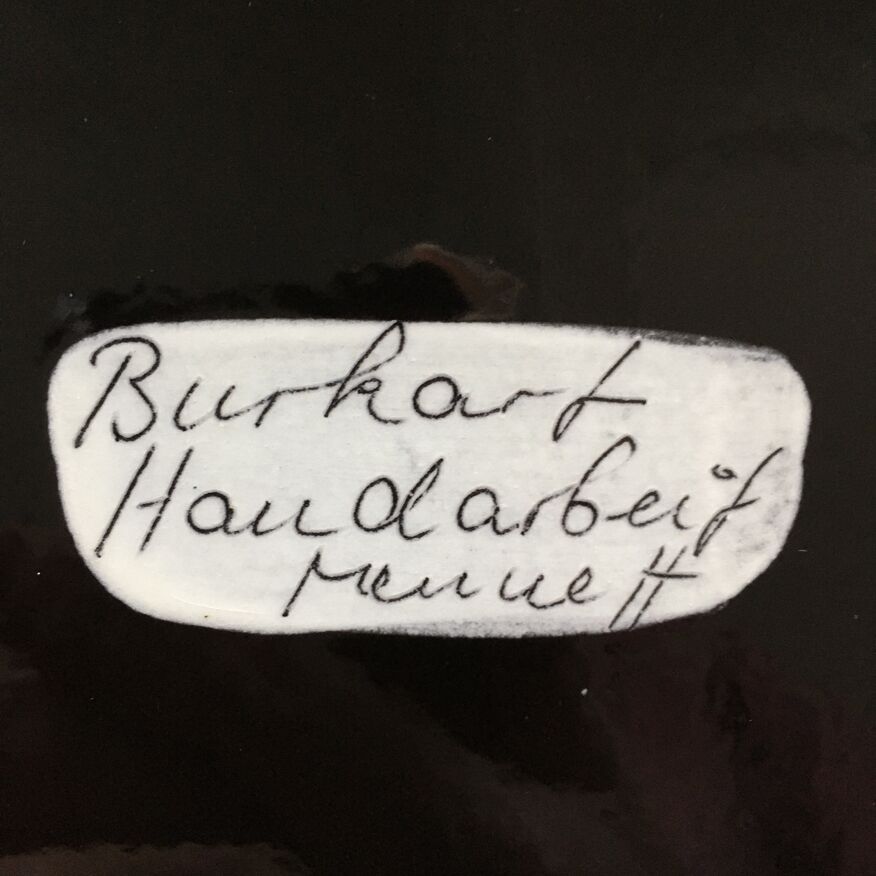 Burkart
Handarbeit
Menuett